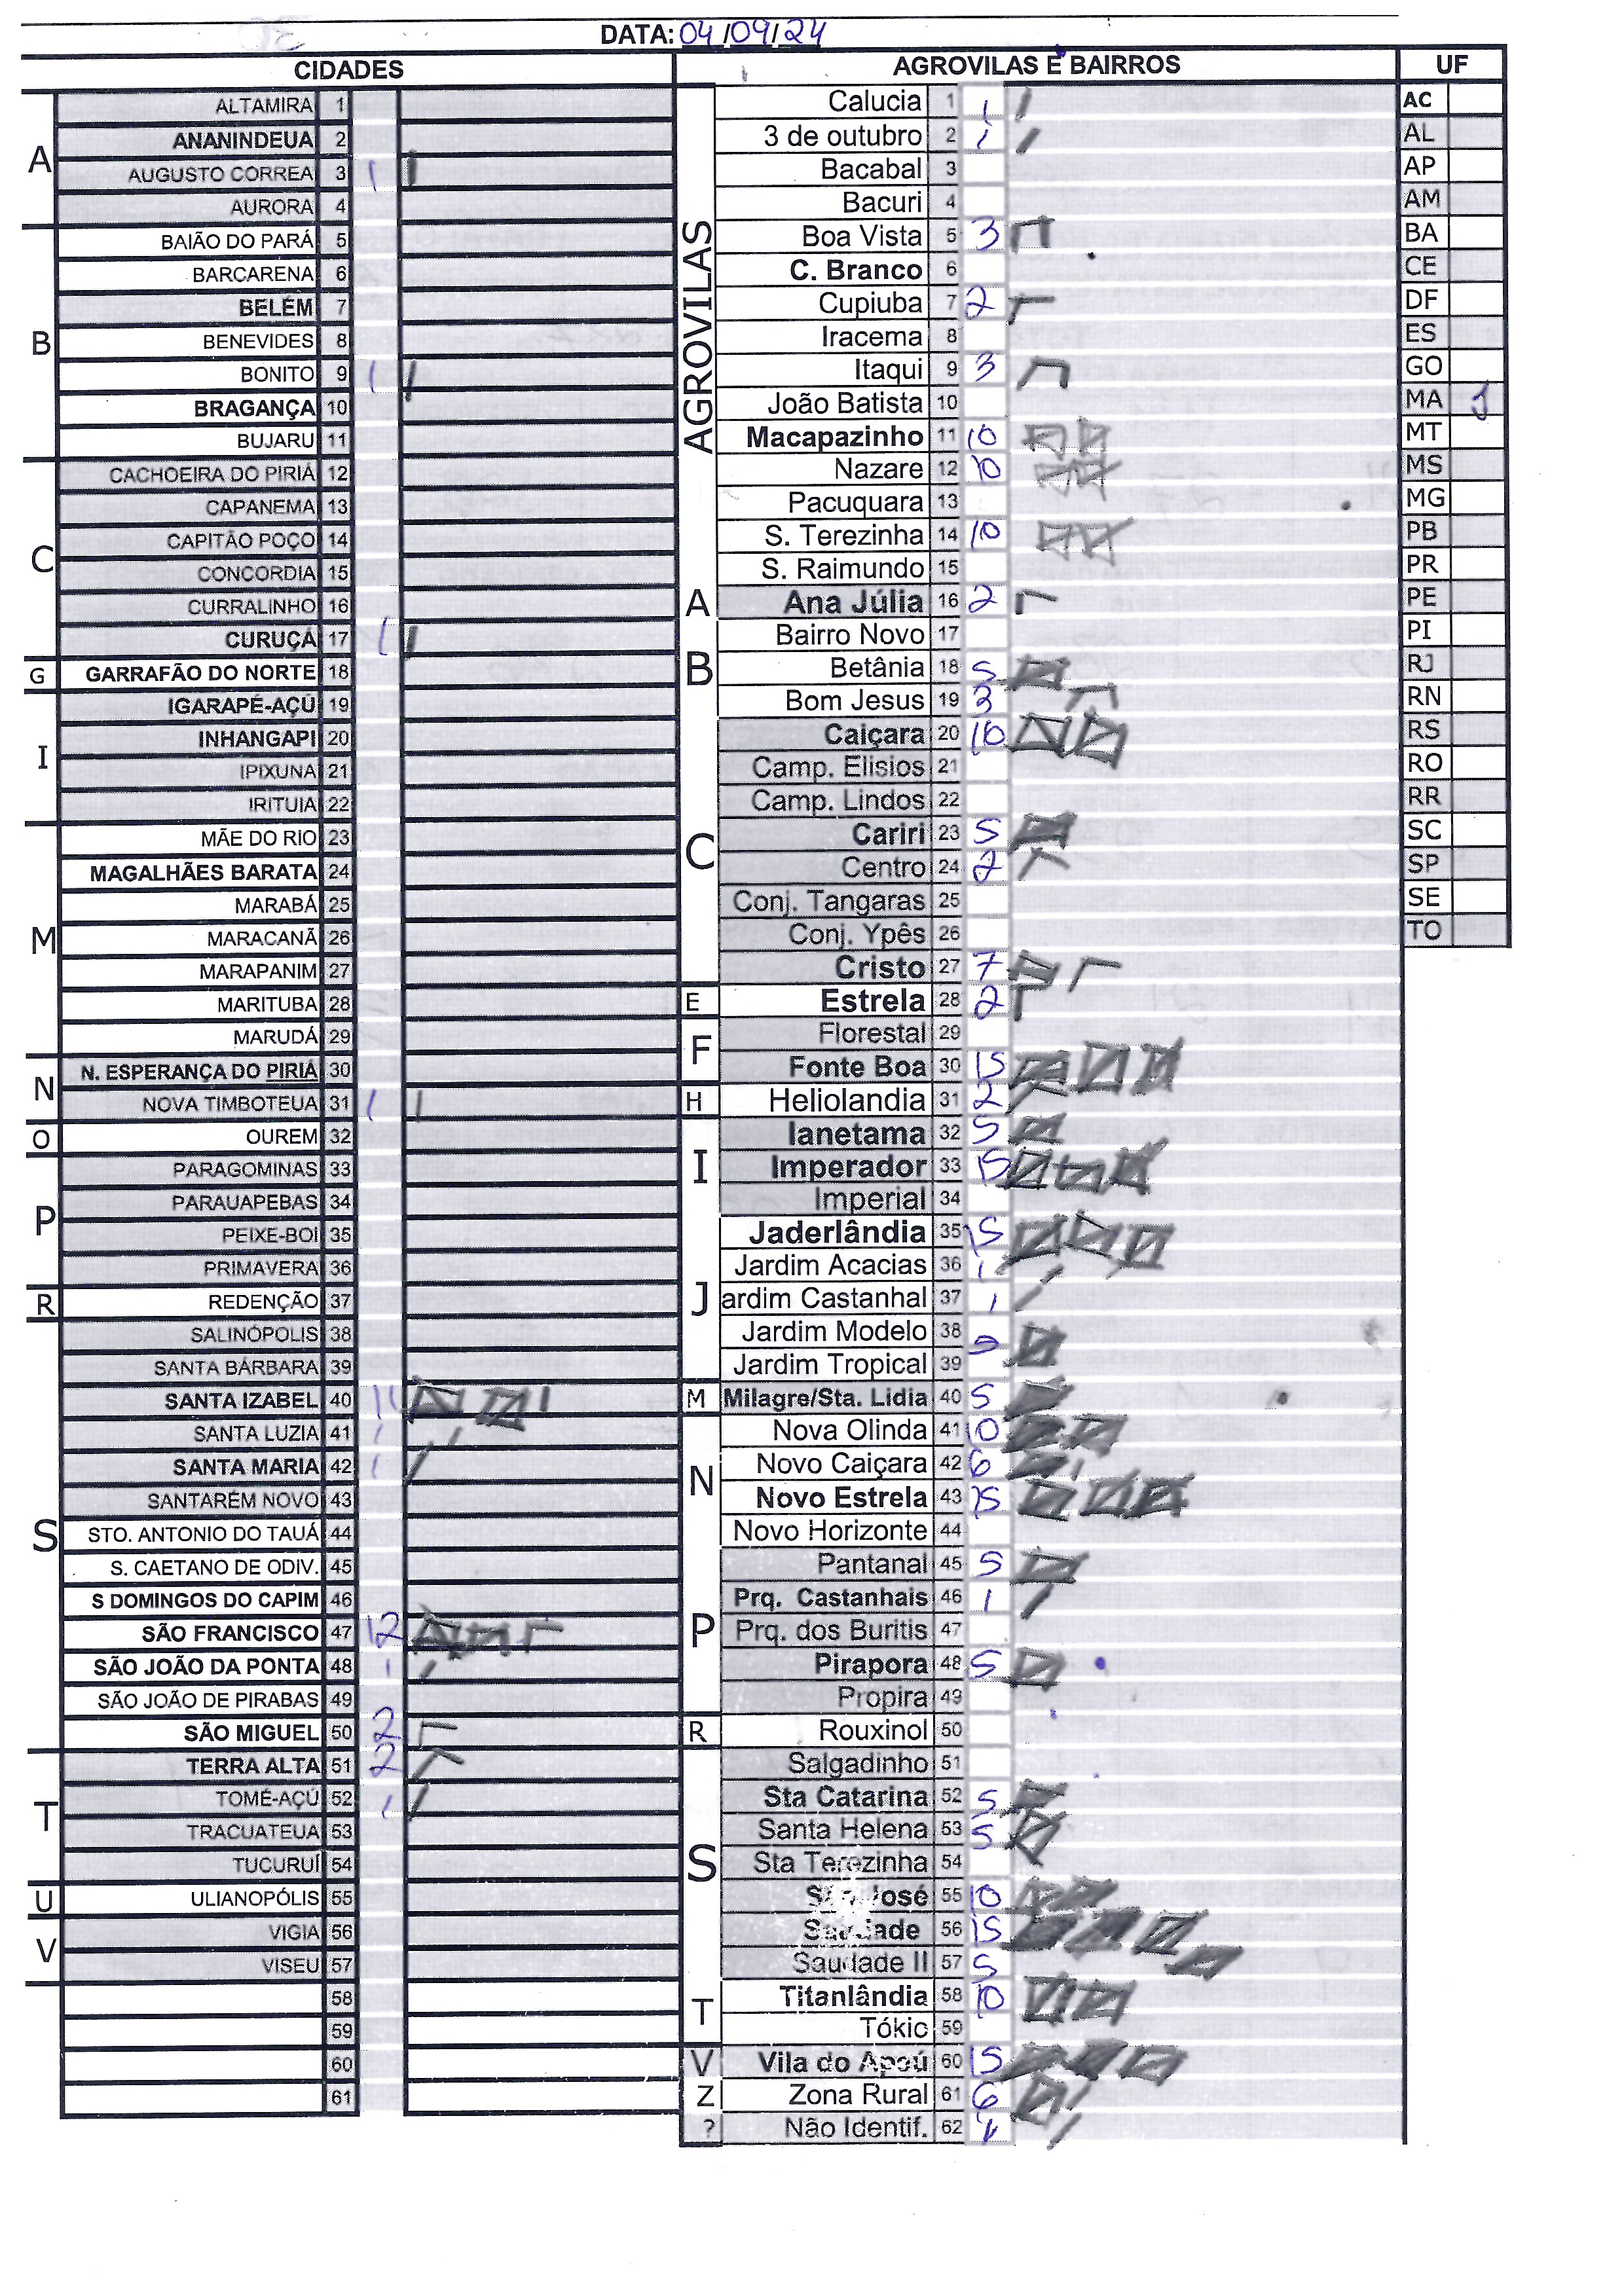 DATA: 04/09/24
CIDADES
A
ALTAMIRA 1
ANANINDEUA 2
AUGUSTO CORREA 3 1
AURORA 4
B
BAIÃO DO PARÁ 5
BARCARENA 6
BELÉM 7
BENEVIDES 8
BONITO 9 1
BRAGANÇA 10
BUJARU 11
C
CACHOEIRA DO PIRIÁ 12
CAPANEMA 13
CAPITÃO POÇO 14
CONCORDIA 15
CURRALINHO 16
CURUÇÁ 17 1
G
GARRAFÃO DO NORTE 18
I
IGARAPÉ-AÇÚ 19
INHANGAPI 20
IPIXUNA 21
IRITUIA 22
M
MÃE DO RIO 23
MAGALHÃES BARATA 24
MARABÁ 25
MARACANÃ 26
MARAPANIM 27
MARITUBA 28
MARUDÁ 29
N
N. ESPERANÇA DO PIRIÁ 30
NOVA TIMBOTEUA 31 1
O
OUREM 32
P
PARAGOMINAS 33
PARAUAPEBAS 34
PEIXE-BOI 35
PRIMAVERA 36
R
REDENÇÃO 37
S
SALINÓPOLIS 38
SANTA BÁRBARA 39
SANTA IZABEL 40 11
SANTA LUZIA 41 1
SANTA MARIA 42 1
SANTARÉM NOVO 43
STO. ANTONIO DO TAUÁ 44
S. CAETANO DE ODIV. 45
S DOMINGOS DO CAPIM 46
SÃO FRANCISCO 47 12
SÃO JOÃO DA PONTA 48 1
SÃO JOÃO DE PIRABAS 49
SÃO MIGUEL 50 2
T
TERRA ALTA 51 2
TOMÉ-AÇÚ 52 1
TRACUATEUA 53
TUCURUÍ 54
U
ULIANOPÓLIS 55
V
VIGIA 56
VISEU 57
58
59
60
61
AGROVILAS E BAIRROS
AGROVILAS
Calucia 1 1
3 de outubro 2 1
Bacabal 3
Bacuri 4
Boa Vista 5 3
C. Branco 6
Cupiuba 7 2
Iracema 8
Itaqui 9 3
João Batista 10
Macapazinho 11 10
Nazare 12 10
Pacuquara 13
S. Terezinha 14 10
S. Raimundo 15
A
Ana Júlia 16 2
B
Bairro Novo 17
Betânia 18 5
Bom Jesus 19 3
C
Caiçara 20 10
Camp. Elisios 21
Camp. Lindos 22
Cariri 23 5
Centro 24 2
Conj. Tangaras 25
Conj. Ypês 26
Cristo 27 7
E
Estrela 28 2
F
Florestal 29
Fonte Boa 30 15
H
Heliolandia 31 2
I
Ianetama 32 5
Imperador 33 15
Imperial 34
J
Jaderlândia 35 15
Jardim Acacias 36 1
ardim Castanhal 37 1
Jardim Modelo 38 5
Jardim Tropical 39
M
Milagre/Sta. Lidia 40 5
N
Nova Olinda 41 10
Novo Caiçara 42 6
Novo Estrela 43 15
Novo Horizonte 44
P
Pantanal 45 5
Prq. Castanhais 46 1
Prq. dos Buritis 47
Pirapora 48 5
Propira 49
R
Rouxinol 50
S
Salgadinho 51
Sta Catarina 52 5
Santa Helena 53 5
Sta Terezinha 54
São José 55 10
Saudade 56 15
Saudade II 57 5
T
Titanlândia 58 10
Tókio 59
V
Vila do Apeú 60 15
Z
Zona Rural 61 6
?
Não Identif. 62 1
UF
AC
AL
AP
AM
BA
CE
DF
ES
GO
MA 1
MT
MS
MG
PB
PR
PE
PI
RJ
RN
RS
RO
RR
SC
SP
SE
TO